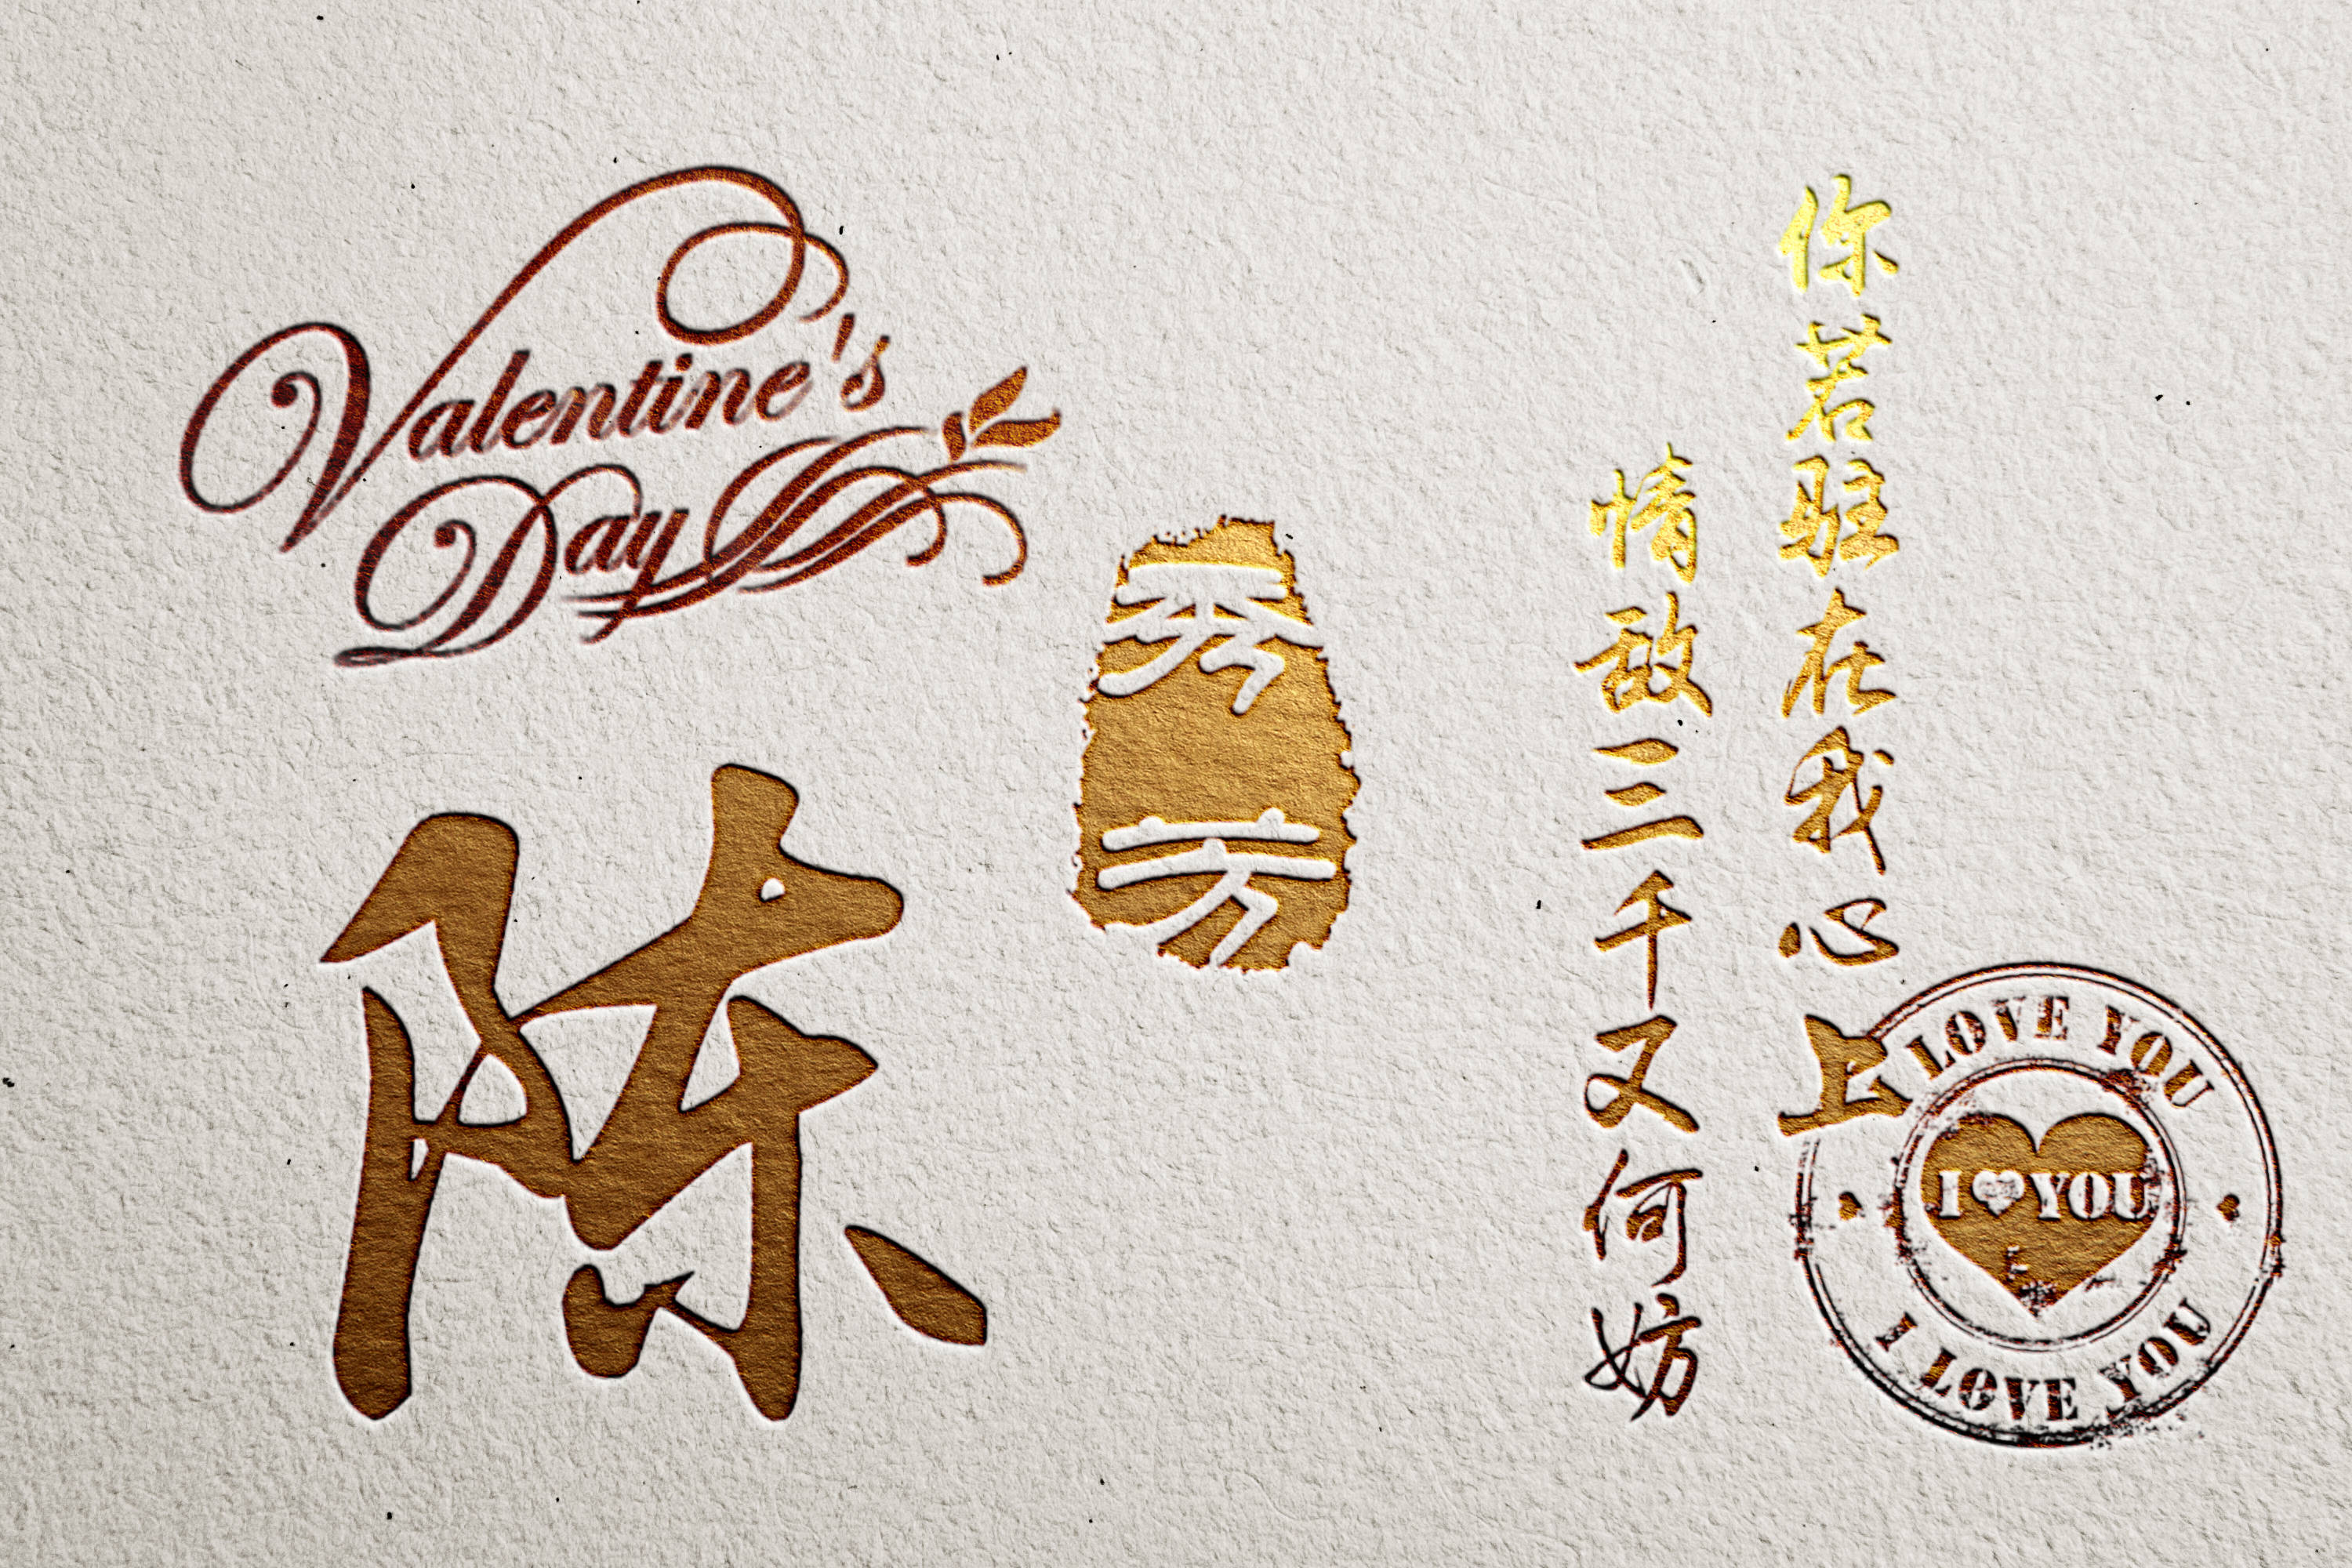 Valentine's
Day
陈
秀芳
你若驻在我心上
情敌三千又何妨
I LOVE YOU
I YOU
I LOVE YOU